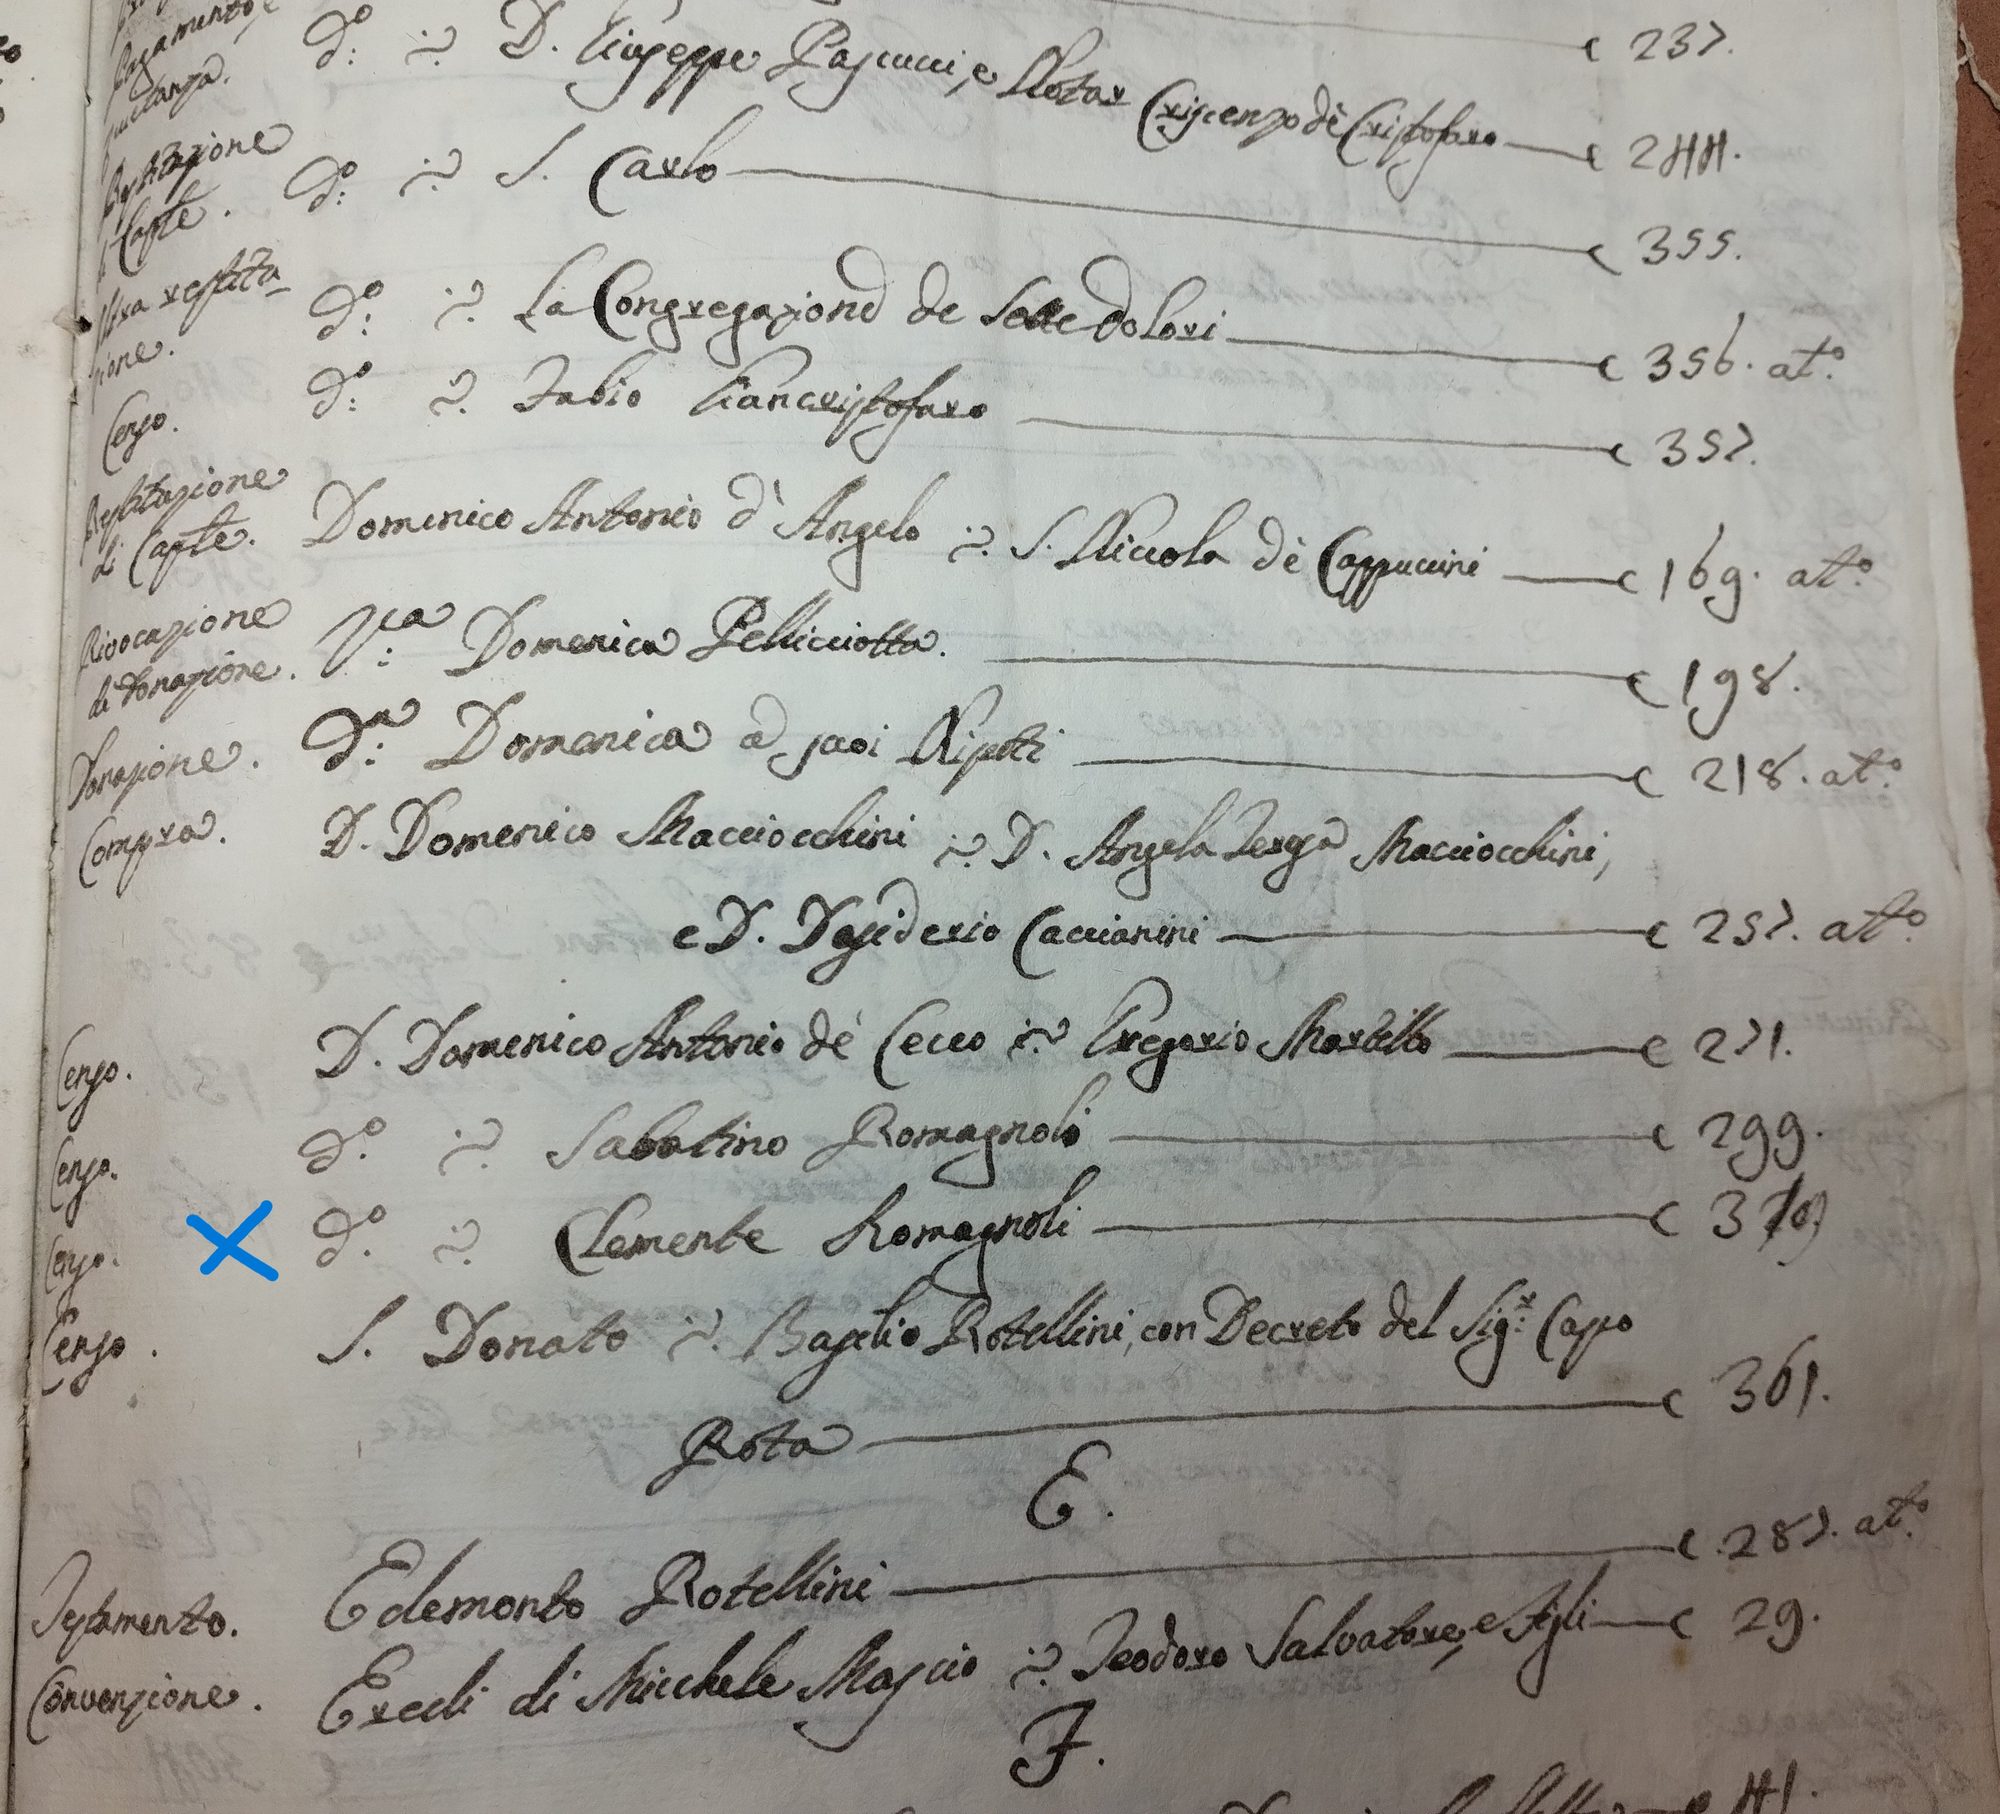 Pagamento, e
quietanza. d.º i? D. Giuseppe Pascucci, e Notar Criscenzo dè Cristofaro — c 244.
c 237.
Restituzione
di Capte. d.º i? S. Carlo — c 355.
Altra restitu-
zione. d.º i? La Congregazione de Sette dolori — c 356. at.º
Censo. d.º i? Fabio Giancristofaro — c 357.
Restituzione
di Capte. Domenico Antonio d'Angelo i? S. Niccola dè Cappuccini — c 169. at.º
Rivocazione
di Donazione. Domenica Pellicciotta. — c 198.
Donazione. d.ª Domenica a suoi Nipoti — c 218. at.º
Compra. D. Domenico Macciocchini i? D. Angela Teresa Macciocchini,
e D. Desiderio Caccianini — c 257. at.º
Censo. D. Domenico Antonio dè Cecco i? Gregorio Martello — c 271.
Censo. d.º i? Sabatino Romagnoli — c 299.
Censo. d.º i? Clemente Romagnoli — c
Censo. S. Donato i? Basilio Rotellini, con Decreto del Sig.r Capo
Rota — c 361.
E.
Testamento. Edemondo Rotellini — c 287. at.º
Convenzione. Eredi di Micchele Mascio i? Teodoro Salvatore, e Figli — c 29.
F.